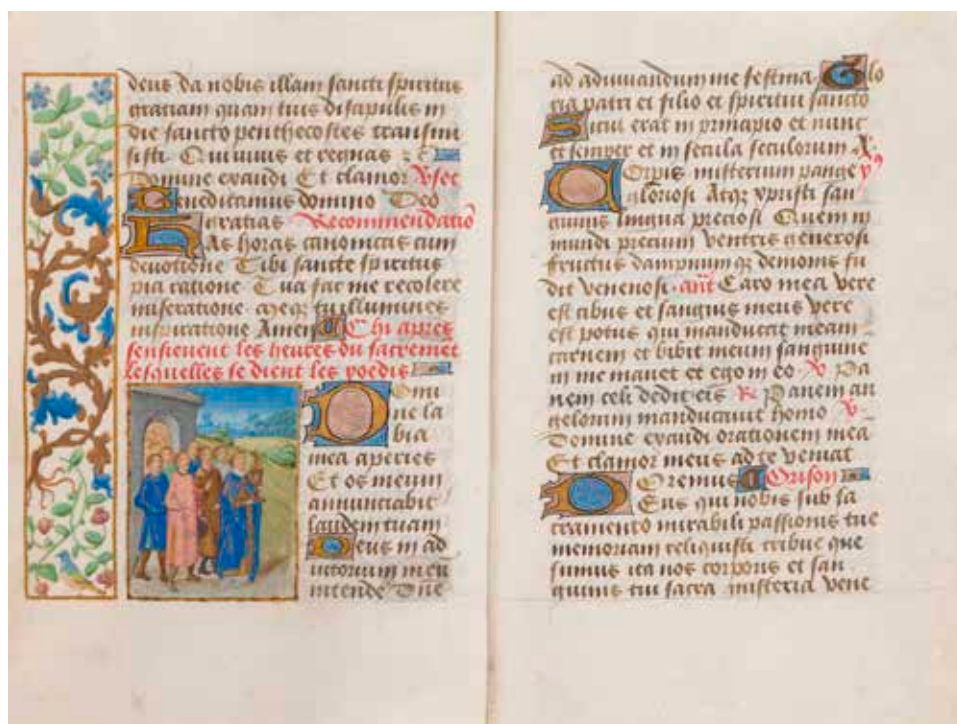 deus da nobis illam sancti spiritus
gratiam quam tuis discipulis in
die sancto penthecostes transmi
sisti Qui viuis et regnas
Domine exaudi Et clamor
Benedicamus domino Deo
gratias Recommendatio
Has horas canonicas cum
deuotione Tibi sancte spiritus
pia ratione Tua fac me recolere
miseratione Meque tu illumines
inspiratione Amen Chi apres
sensieuent les heures du sacremet
lesquelles se dient les
Domi
ne la
bia
mea aperies
Et os meum
annunciabit
laudem tuam
Deus in ad
iutorium meu
intende Dne
ad adiuuandum me festina Glo
ria patri et filio et spiritui sancto
Sicut erat in principio et nunc
et semper et in secula seculorum A
Corpis misterium pange
gloriosi Atqz xpristi san
guinis lingua preciosi Quem in
mundi precium ventris generosi
fructus dampnumqz demonis fu
dit venenosi ant Caro mea vere
est cibus et sanguis meus vere
est potus qui manducat meam
carnem et bibit meum sanguine
in me manet et ego in eo V Pa
nem celi dedit eis R Panem an
gelorum manducauit homo V
Domine exaudi orationem mea
Et clamor meus ad te veniat
Oremus Orison
Deus qui nobis sub sa
cramento mirabili passionis tue
memoriam reliquisti tribue que
sumus ita nos corporis et san
guinis tui sacra misteria vene